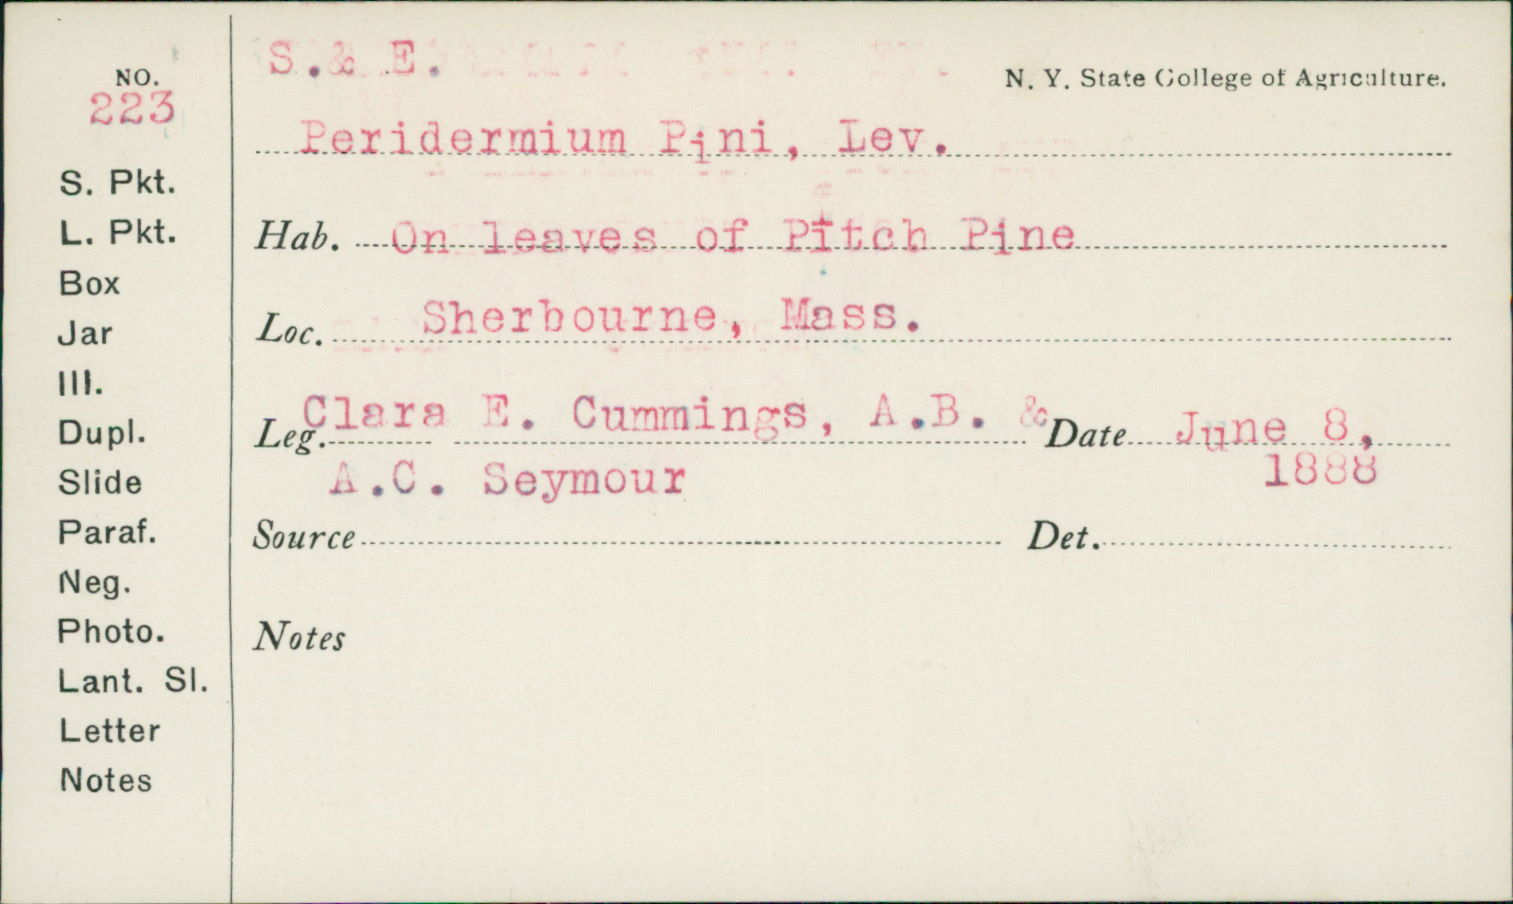 NO.
223
S. Pkt.
L. Pkt.
Box
Jar
Ill.
Dupl.
Slide
Paraf.
Neg.
Photo.
Lant. Sl.
Letter
Notes
S.& E.
N. Y. State College of Agriculture.
Peridermium Pini, Lev.
Hab. On leaves of Pitch Pine
Loc. Sherbourne, Mass.
Leg. Clara E. Cummings, A.B. & Date June 8,
A.C. Seymour 1888
Source Det.
Notes